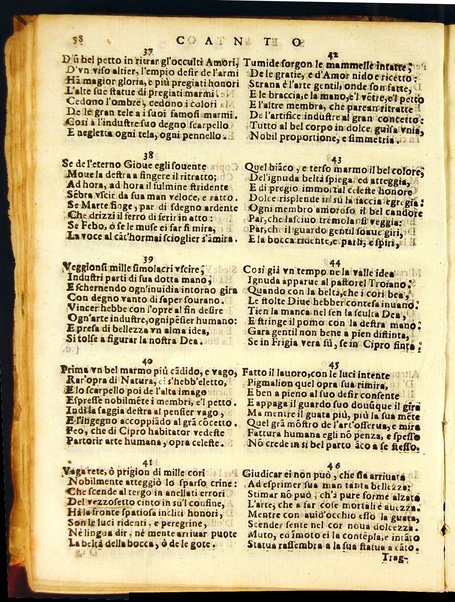 58
COANTO
37
D'ũ bel petto in ritrar gl'occulti Amori,
D'vn viso altier, l'empio desir de l'armi
Hà magior gloria, e più pregiati honori
L'alte sue statue di pregiati marmi.
Cedono l'ombre, cedono i colori
De le gran tele a i suoi famosi marmi.
Così à l'industre suo degno scarpello
E negletta ogni tela, ogni pennello.
38
Se de l'eterno Gioue egli souente
Moue la destra a fingere il ritratto;
Ad hora, ad hora il fulmine stridente
Sẽbra vscir da sua man veloce, e ratto.
Se Marte finge, par di sdegno ardente
Che drizzi il ferro di ferir in atto:
Se Febo, ò se le muse ei far si mira,
La voce al cãt'hormai scioglier s'amira.
39
Veggionsi mille simolacri vscire,
Industri parti di sua dotta mano;
E schernendo ogn'inuidia intorno gira
Con degno vanto di saper sourano.
Vincer hebbe con l'opre al fin desire
Ogn'arte industre, ogni pẽsier humano:
E presa di bellezza vn alma idea,
Si tolse a figurar la nostra Dea.
40
Prima vn bel marmo più cãdido, e vago,
Rar'opra di Natura, ei s'hebb'eletto,
E lo scarpello poi de l'alta imago
Espresse nobilmẽte i membri, e'l petto.
Indi la saggia destra al pensier vago,
E l'ingegno accoppiãdo al grã cõcetto.
Feo, che di Cipro habitator vedeste
Partorir arte humana, opra celeste.
41
Vaga rete, ò prigion di mille cori
Nobilmente atteggiò lo sparso crine:
Che scende al tergo in anellati errori
Del vezzosetto cinto in su'l confine,
Hà la fronte spatiosa incliti honori,
Son le luci ridenti, e peregrine,
Nè lingua dir, nè mente arriuar puote
La beltà della bocca, ò de le gote.
42
Tumide sorgon le mammelle intatte;
De le gratie, e d'Amor nido e ricetto:
Strana è l'arte gentil, ond'ella hà fatte
E le braccia, e la mano, e'l vẽtre, e'l petto
E l'altre membra, che parean ritratte
De l'artifice industre al gran concetto:
Tutto al bel corpo in dolce guisa vnia,
Nobil proportione, e simmetria.
43
Quel biãco, e terso marmo il bel colore,
Del'ignuda beltà spiega ed atteggia,
E di pregio immortal celeste honore
Dolce risplende in sù la faccia egregia:
Ogni membro amoroso il bel candore
Par, che lasciuo tremoli ò veggia:
Par, che il guardo gentil soaue giri,
E la bocca ridente, e parli, e spiri,
44
Cosi già vn tempo ne la valle idea
Ignuda apparue al pastorel Troiano,
Quando con la beltà, che i cori bea,
Le stolte Diue hebber contesa inuano,
Tien la manca nel sen la sculta Dea,
E stringe il pomo con la destra mano:
Gara gentil non bene a pien distinta,
Se in Frigia vera fù, se in Cipro finta:
45
Fatto il lauoro, con le luci intente
Pigmalion quel opra sua rimira,
E ben a pieno al suo desir consente
E appaga il guardo suo douũque il gira
Ma mentre il guata più, più la sua mente
Quel gran mostro de l'art'osserua, e mira
Fattura humana egli nõ penza, e spesso
Nõ crede in sì bel parto ãco a se stesso.
46
Giudicar ei non può, che sia arriuata
Ad esprimer sua man tanta bellezza:
Stimar nõ può, ch'à pure forme alzata
L'arte, che a far cose mortali è auezza.
Mentre con auid'occhio esso la guata,
Scender sente nel cor noua dolcezza.
Muto, ed imoto ei la cõtẽpla, e intanto
Statua rassembra a la sua statua a cãto.
Trag-